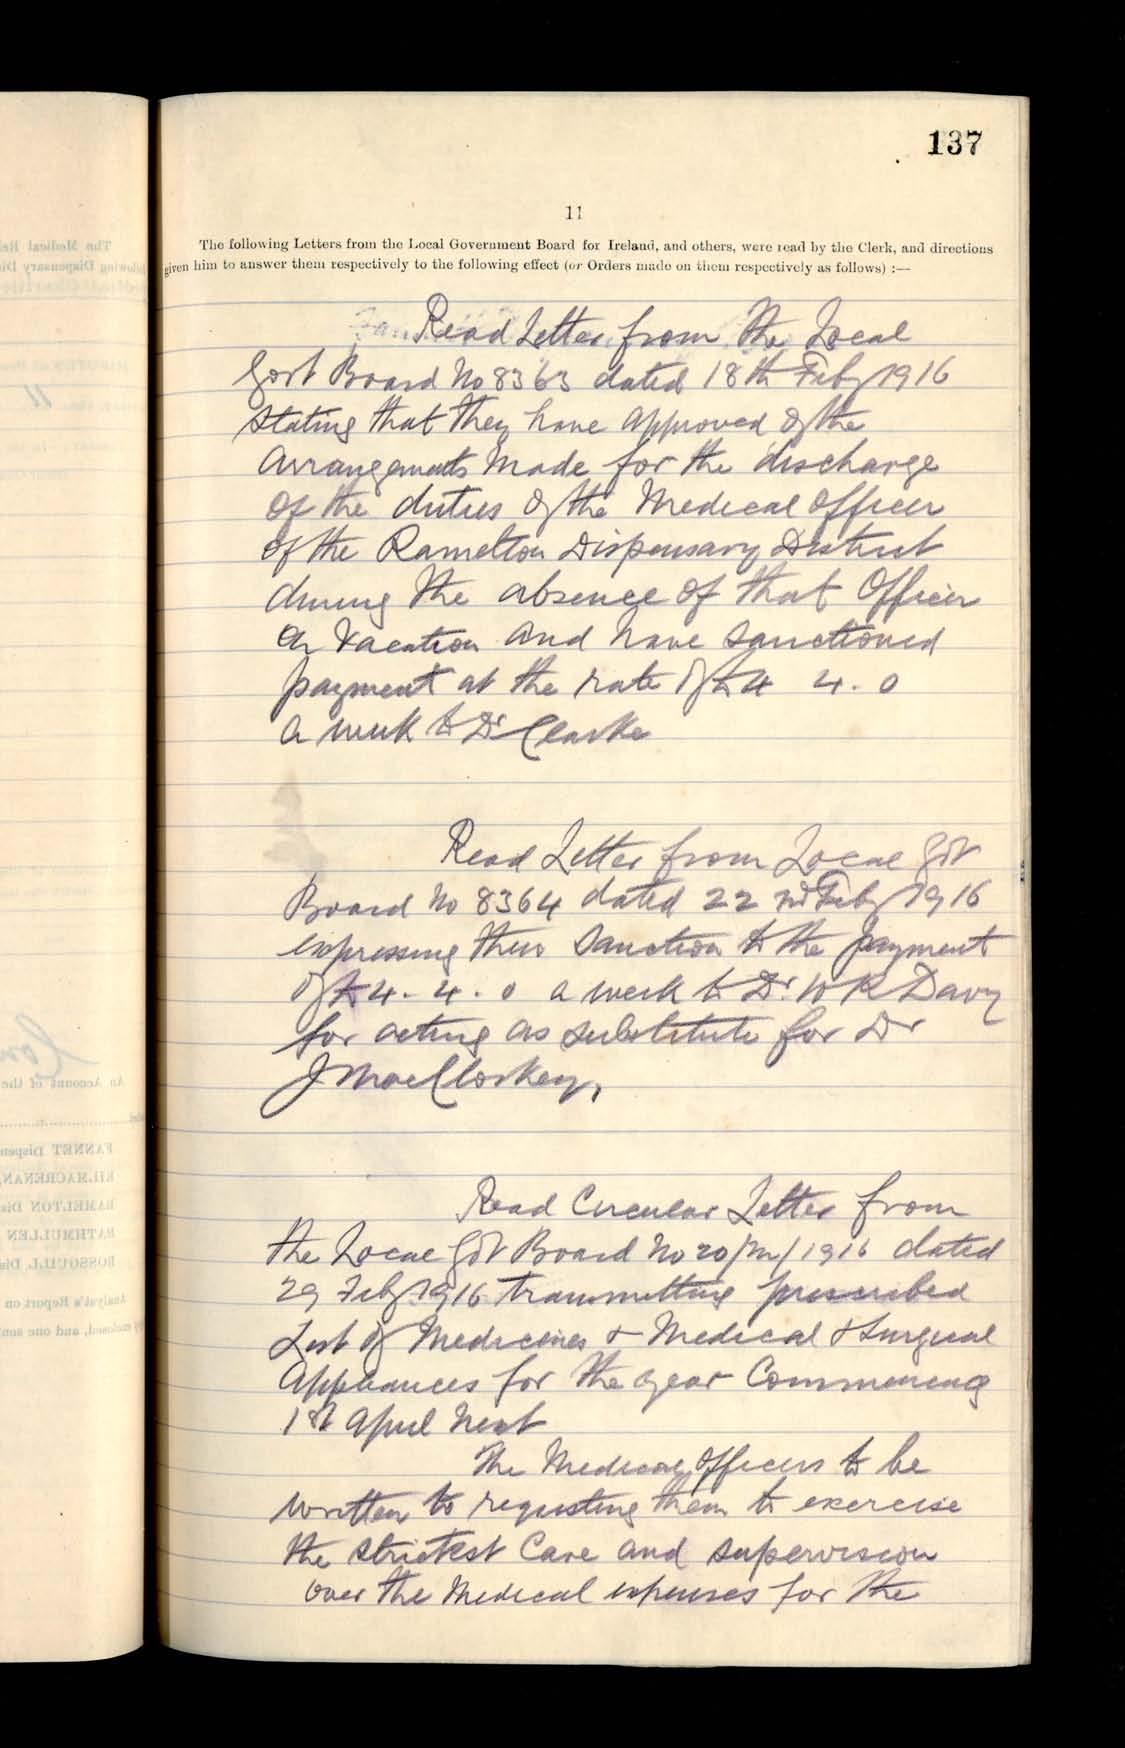 137
11
The following Letters from the Local Government Board for Ireland, and others, were read by the Clerk, and directions
given him to answer them respectively to the following effect (or Orders made on them respectively as follows) :—
Read Letter from the Local
Govt Board No 8363 dated 18th Feby 1916
stating that they have approved of the
Arrangements made for the discharge
of the duties of the Medical Officer
of the Ramelton Dispensary District
during the absence of that Officer
on Vacation and have sanctioned
payment at the rate of £4 4. 0
a week to Dr Clarke
Read Letter from Local Govt
Board No 8364 dated 22nd Feby 1916
expressing their Sanction to the payment
of £4. 4. 0 a week to Dr. W R Davy
for acting as substitute for Dr
J MacCloskey,
Read Circular Letter from
the Local Govt Board No 20/M/1916 dated
29 Feby 1916 transmitting prescribed
List of Medicines & Medical & Surgical
Appliances for the year Commencing
1st April next
The Medical Officers to be
written to requesting them to exercise
the strictest Care and supervision
over the Medical expenses for the
The Medical Rel
An Account of the
FANNET Dispens
KILMACRENAN,
RAMELTON Dis
RATHMULLEN
ROSSGUILL Dis
Analyst's Report on
enclosed, and one sent